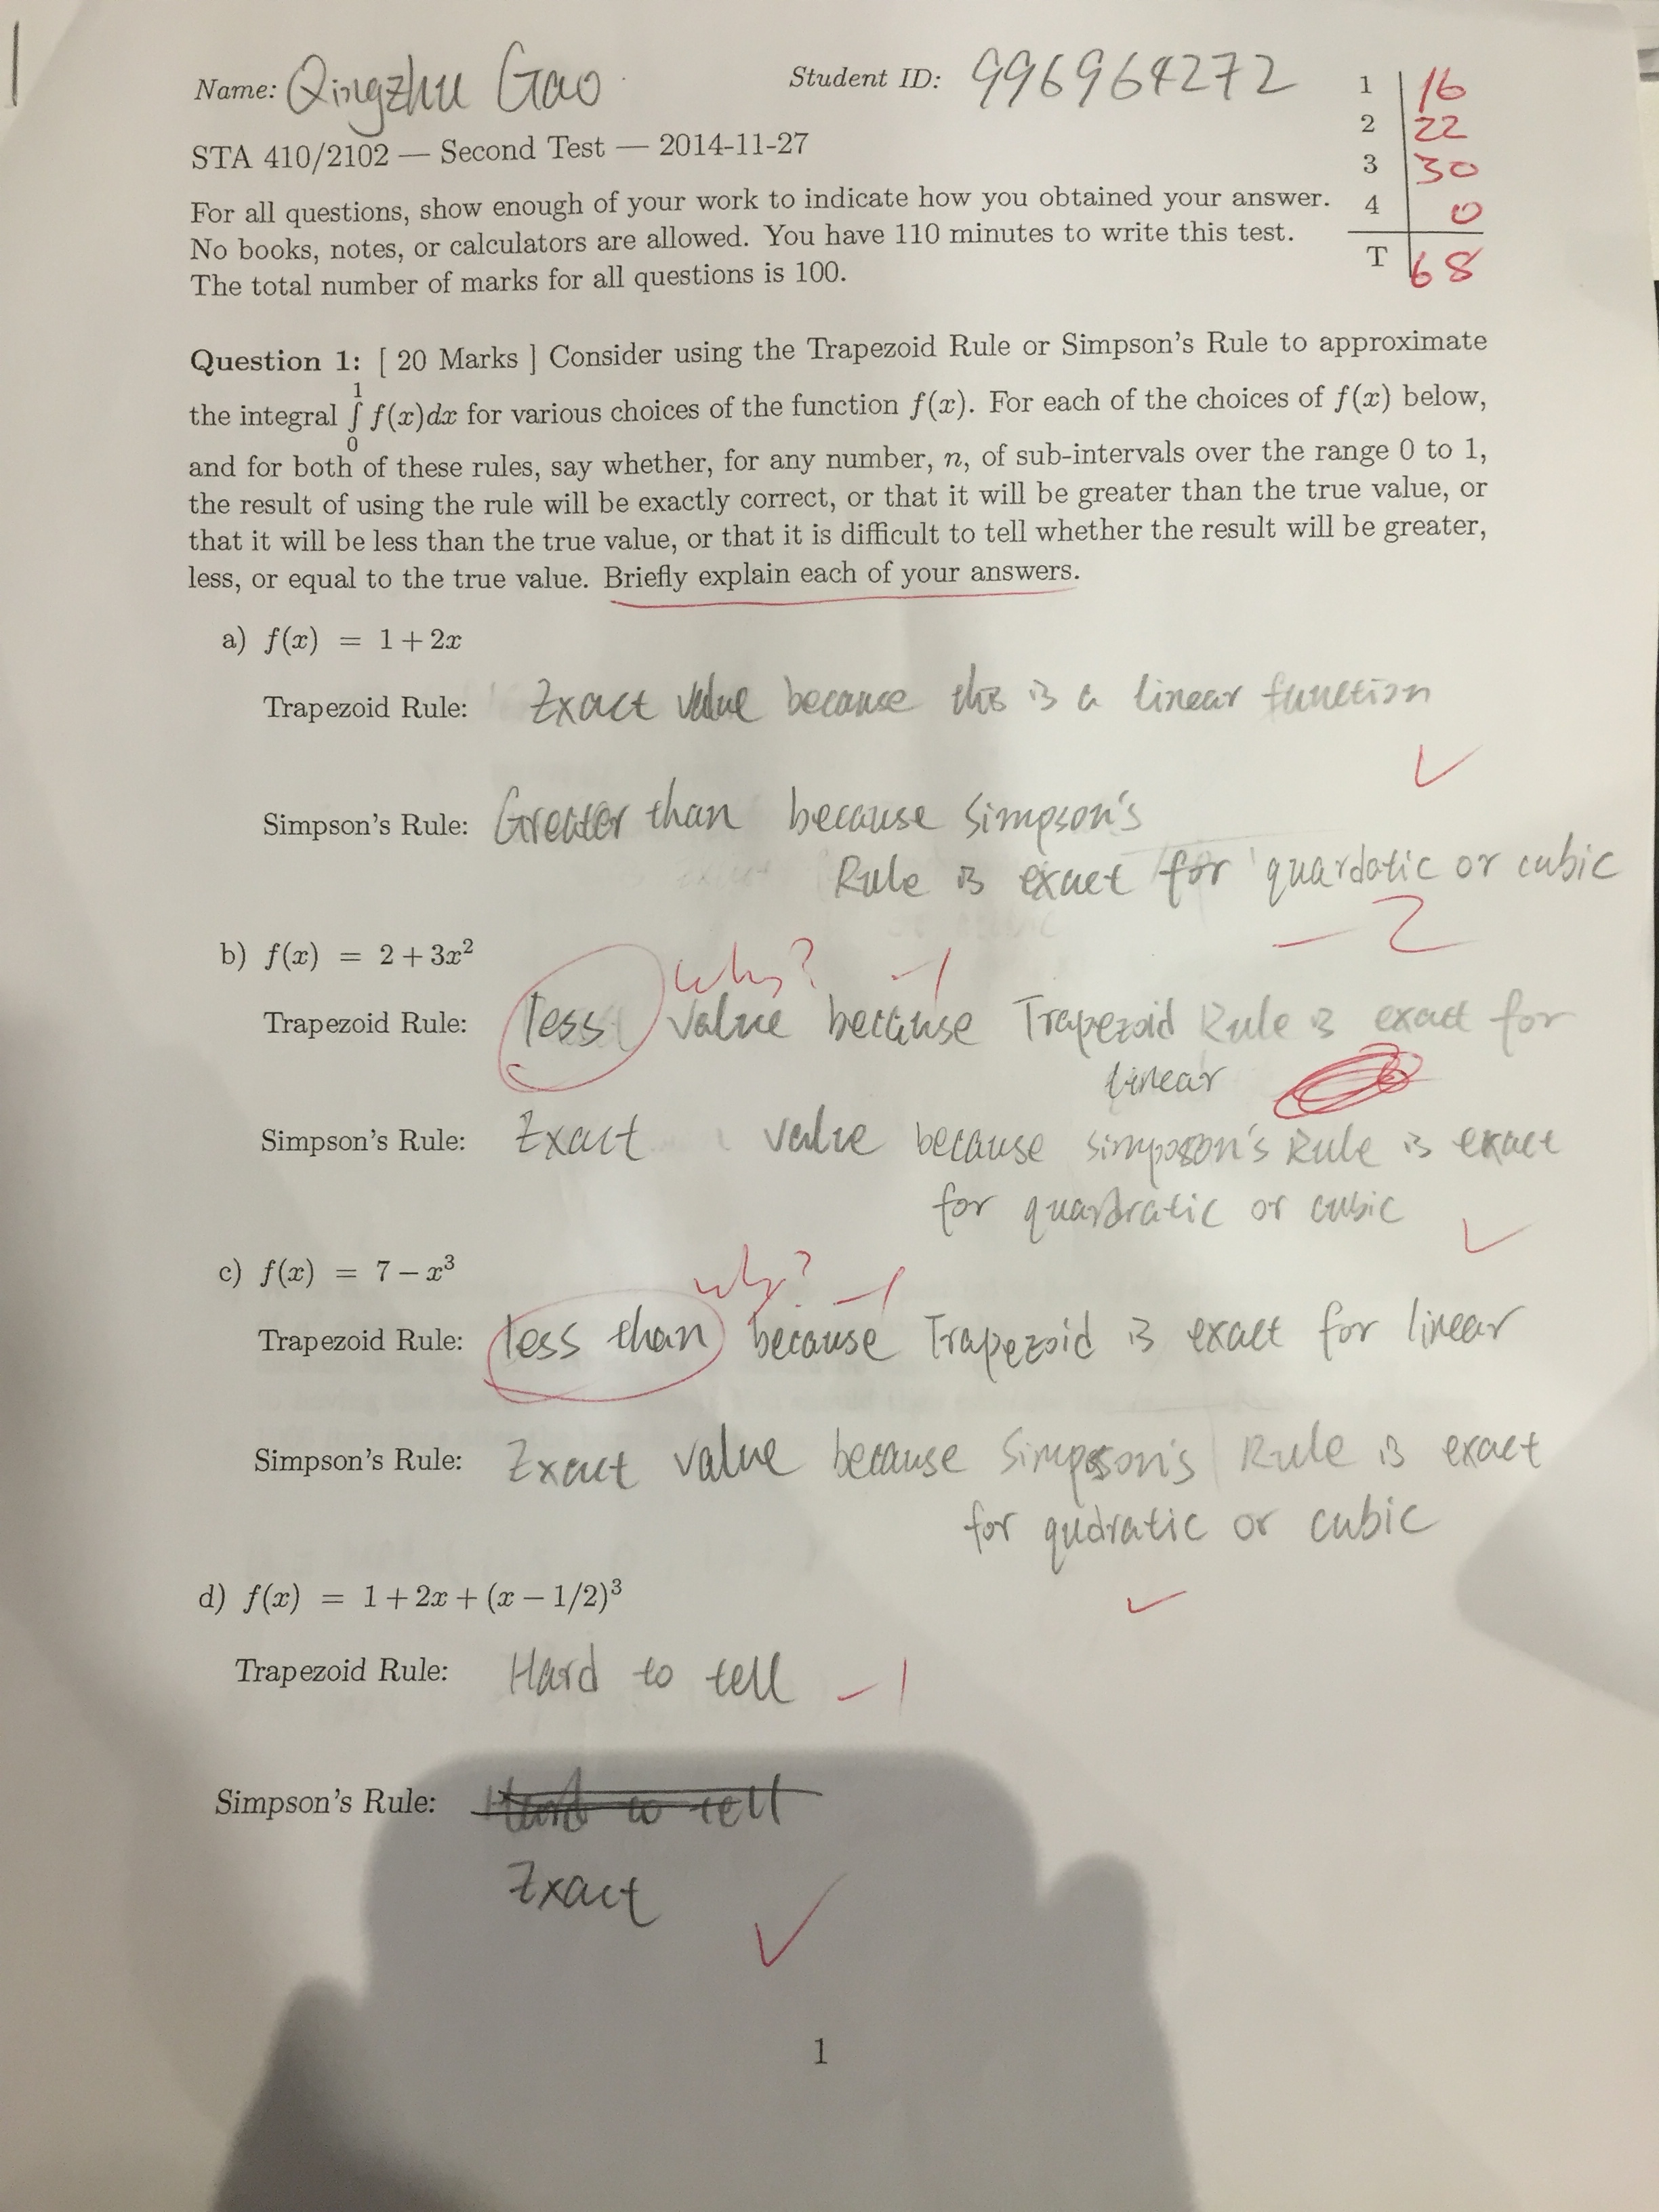 Name: Qingzhu Gao Student ID: 996964272
STA 410/2102 — Second Test — 2014-11-27
1 16
2 22
3 30
4 0
T 68
For all questions, show enough of your work to indicate how you obtained your answer.
No books, notes, or calculators are allowed. You have 110 minutes to write this test.
The total number of marks for all questions is 100.
Question 1: [ 20 Marks ] Consider using the Trapezoid Rule or Simpson's Rule to approximate
the integral ∫₀¹ f(x)dx for various choices of the function f(x). For each of the choices of f(x) below,
and for both of these rules, say whether, for any number, n, of sub-intervals over the range 0 to 1,
the result of using the rule will be exactly correct, or that it will be greater than the true value, or
that it will be less than the true value, or that it is difficult to tell whether the result will be greater,
less, or equal to the true value. Briefly explain each of your answers.
a) f(x) = 1 + 2x
Trapezoid Rule: Exact value because this is a linear function
Simpson's Rule: Greater than because Simpson's
Rule is exact for quardatic or cubic
-2
b) f(x) = 2 + 3x²
why? -1
Trapezoid Rule: less value because Trapezoid Rule is exact for
linear
Simpson's Rule: Exact value because simposon's Rule is exact
for quardratic or cubic
c) f(x) = 7 − x³
why? -1
Trapezoid Rule: less than because Trapezoid is exact for linear
Simpson's Rule: Exact value because Simpson's Rule is exact
for qudratic or cubic
d) f(x) = 1 + 2x + (x − 1/2)³
Trapezoid Rule: Hard to tell -1
Simpson's Rule: Hard to tell
Exact
1